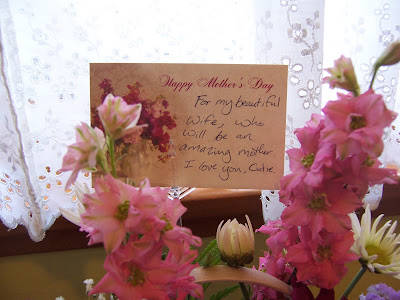 Happy Mother's Day
For my beautiful
Wife, who
will be an
amazing mother
I love you, Cutie